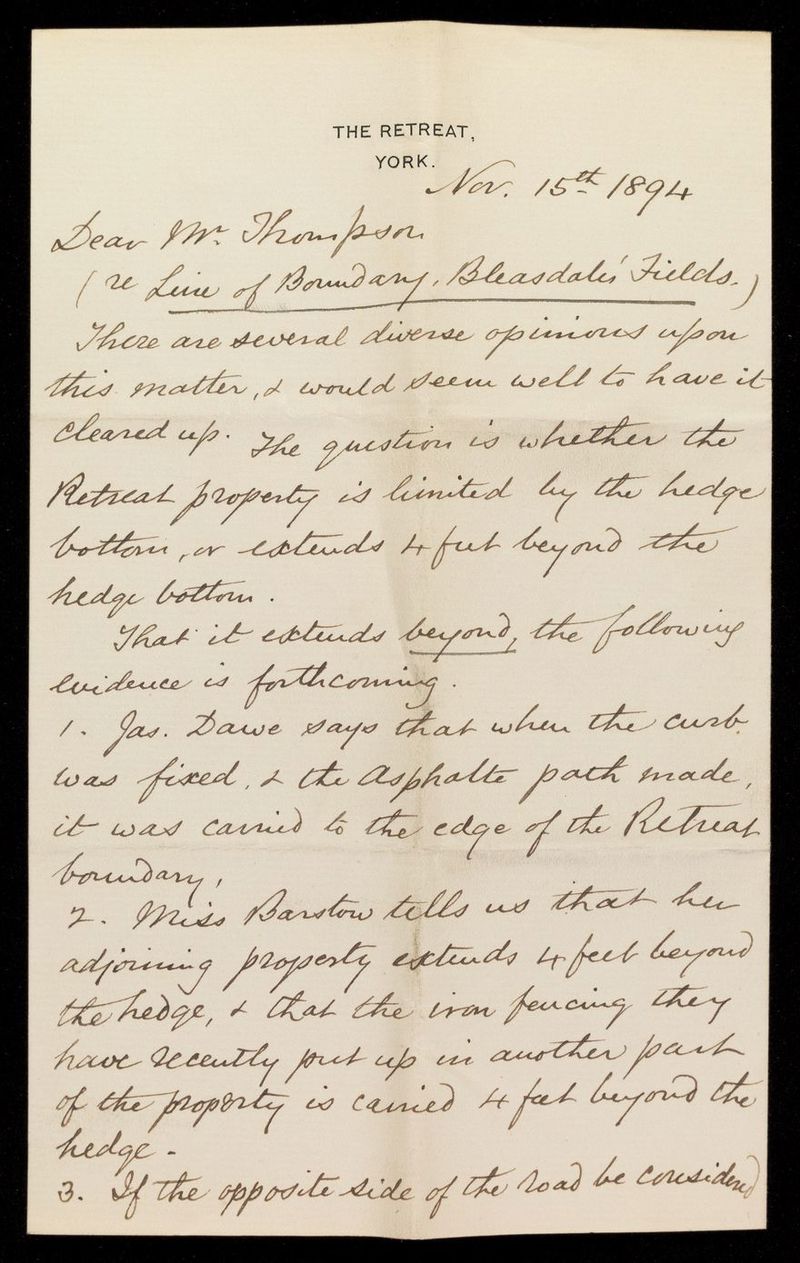 THE RETREAT,
YORK.
Nov. 15th 1894
Dear Mr. Thompson
(re Line of Boundary. Bleasdales' Fields.)
There are several diverse opinions upon
this matter, & would seem well to have it
cleared up. The question is whether the
Retreat property is limited by the hedge
bottom, or extends 4 feet beyond the
hedge bottom.
That it extends beyond, the following
evidence is forthcoming.
1. Jas. Dawe says that when the curb
was fixed, & the Asphalte path made,
it was carried to the edge of the Retreat
boundary,
2. Miss Barstow tells us that her
adjoining property extends 4 feet beyond
the hedge, & that the iron fencing they
have recently put up in another part
of the property is carried 4 feet beyond the
hedge -
3. If the opposite side of the road be considered